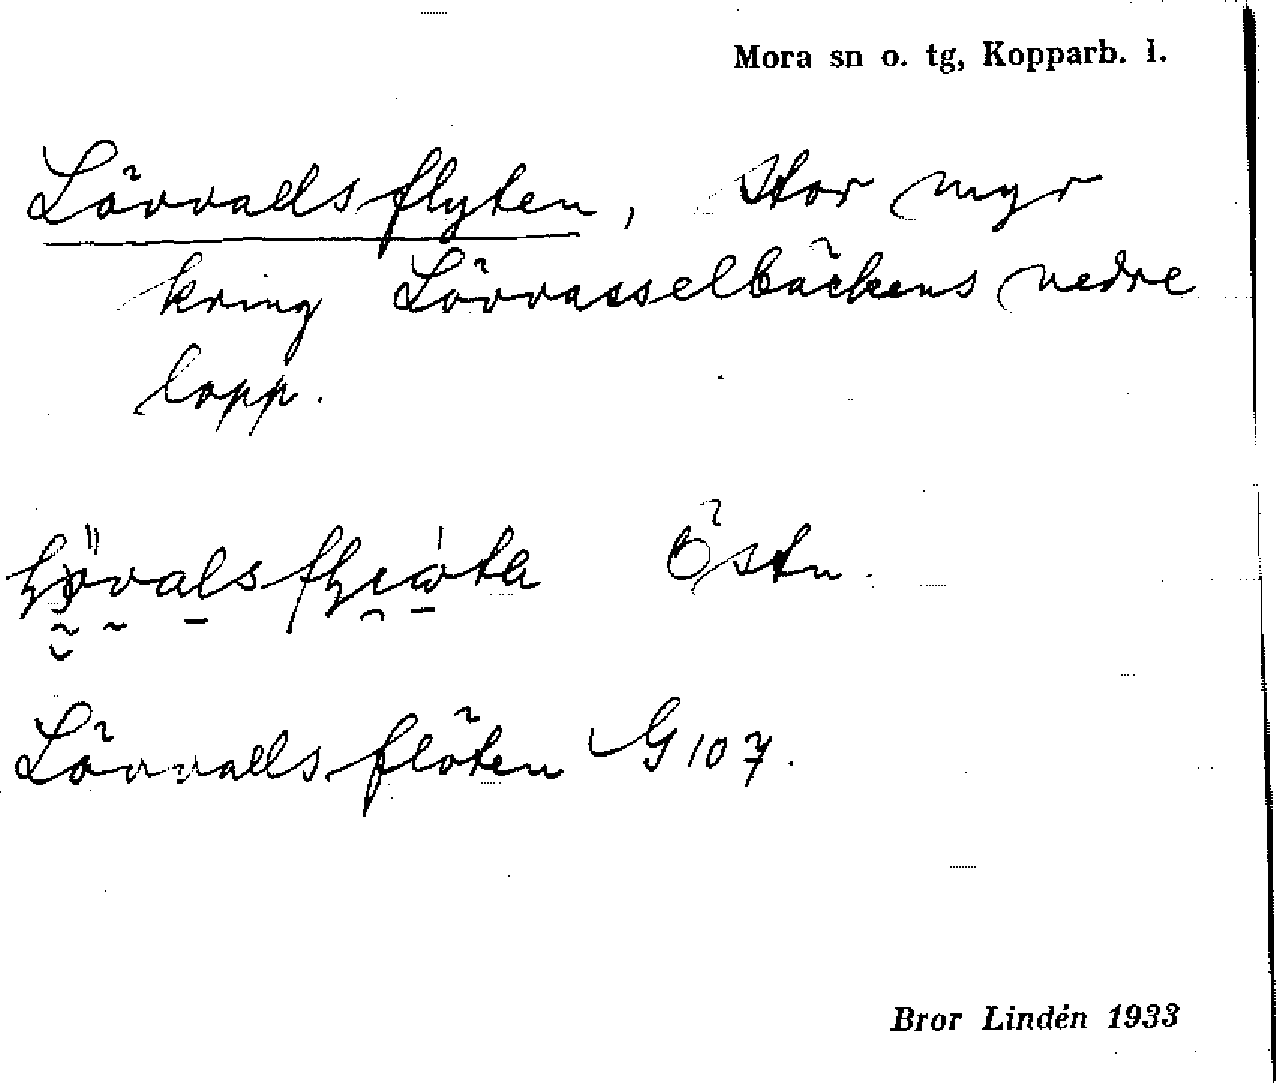 Mora sn o. tg, Kopparb. l.
Lövvallsflyten, Stor myr
kring Lövvasselbäckens nedre
lopp.
Östn.
Lövvallsflöten G 107.
Bror Lindén 1933